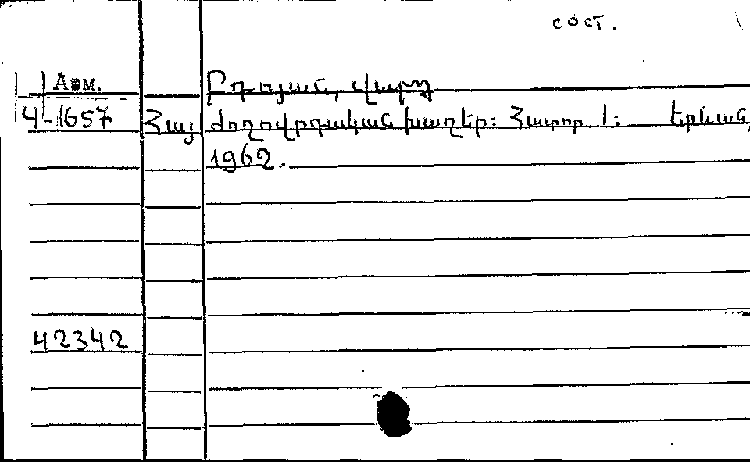 сост.
Арм. Բդոյան, Վարդ
4-1657 Հայ ժողովրդական խաղեր: Հատոր 1: Երևան,
1962.
42342